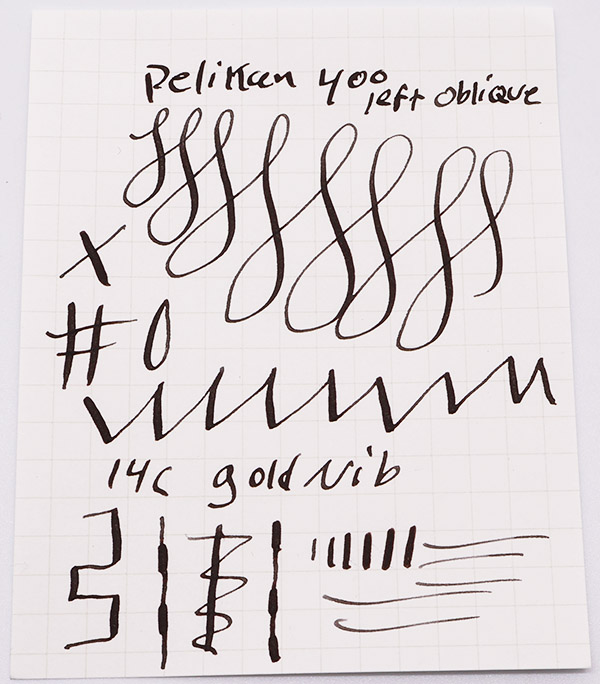 Pelikan 400
left oblique
X
# 0
14c gold nib